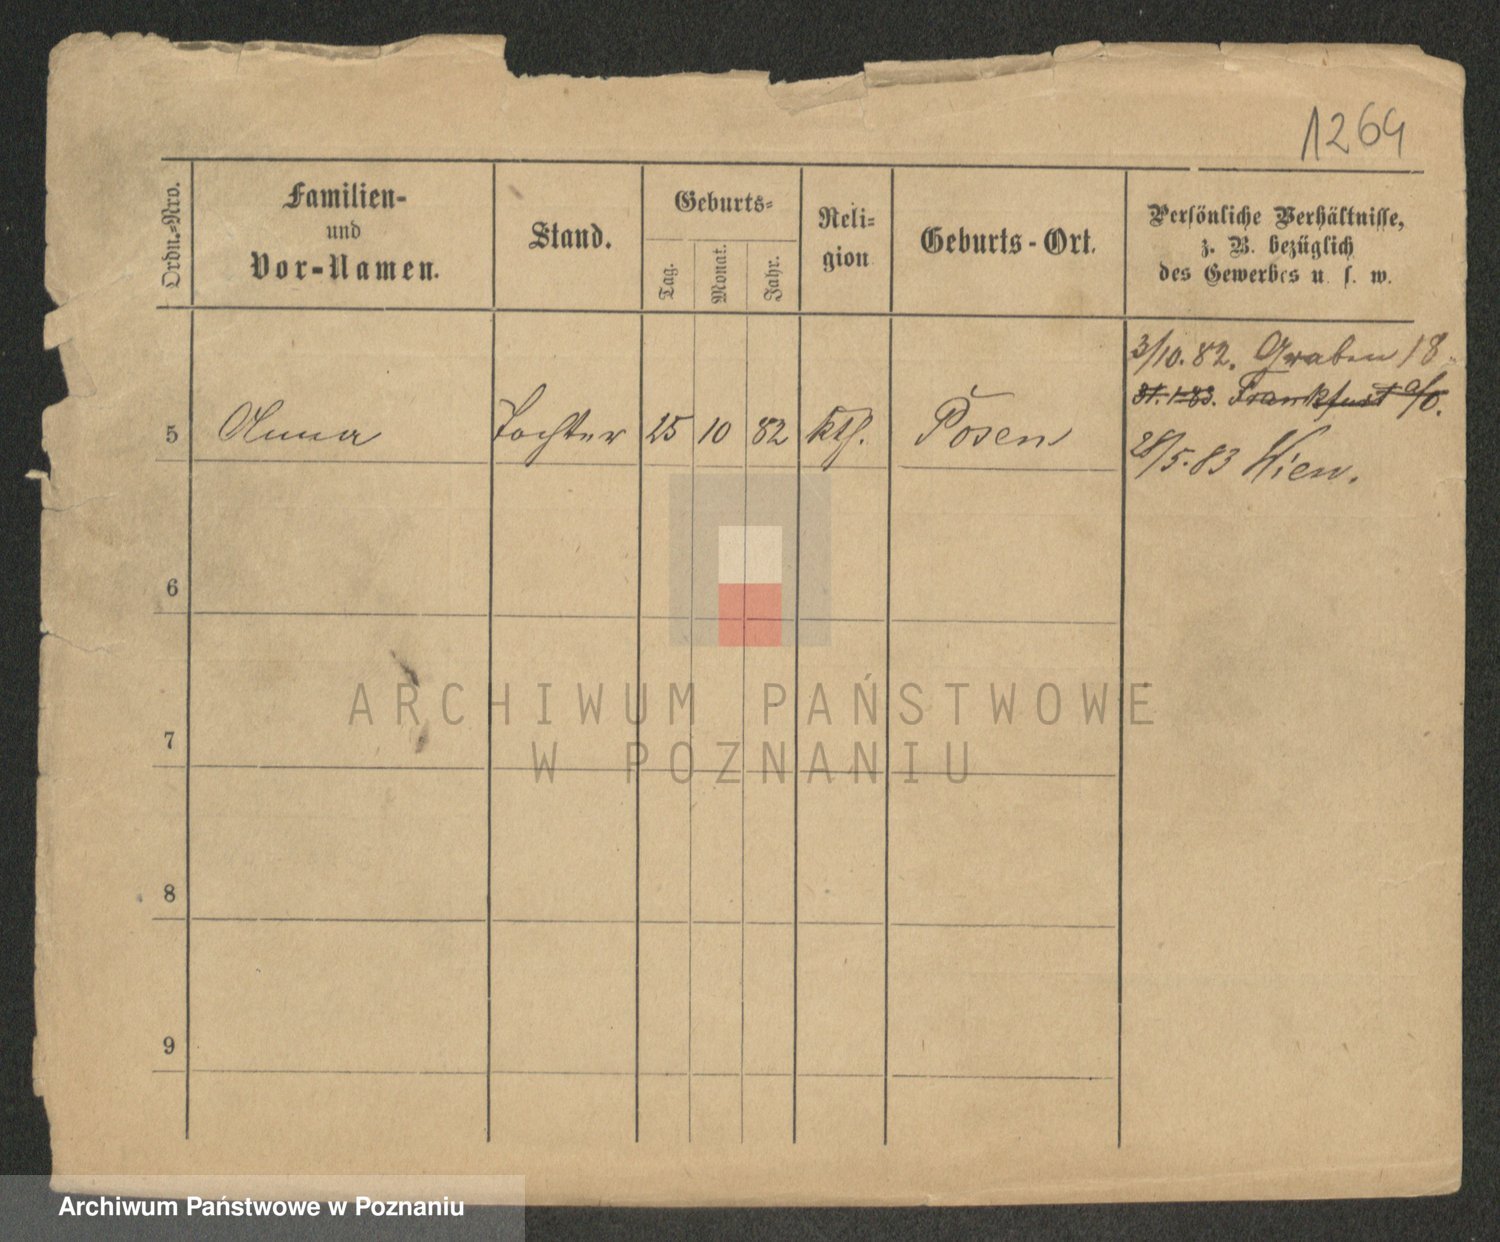 1264
Ordn.-Nro.
Familien-
und
Vor-Namen.
Stand.
Geburts-
Tag.
Monat.
Jahr.
Reli-
gion
Geburts-Ort.
Persönliche Verhältnisse,
z. B. bezüglich
des Gewerbes u. s. w.
3/10.82. Graben 18.
31.1.83. Frankfurt a/O.
5 Anna Tochter 25 10 82 kth. Posen
28/5.83 Wien.
6
7
8
9
ARCHIWUM PAŃSTWOWE
W POZNANIU
Archiwum Państwowe w Poznaniu